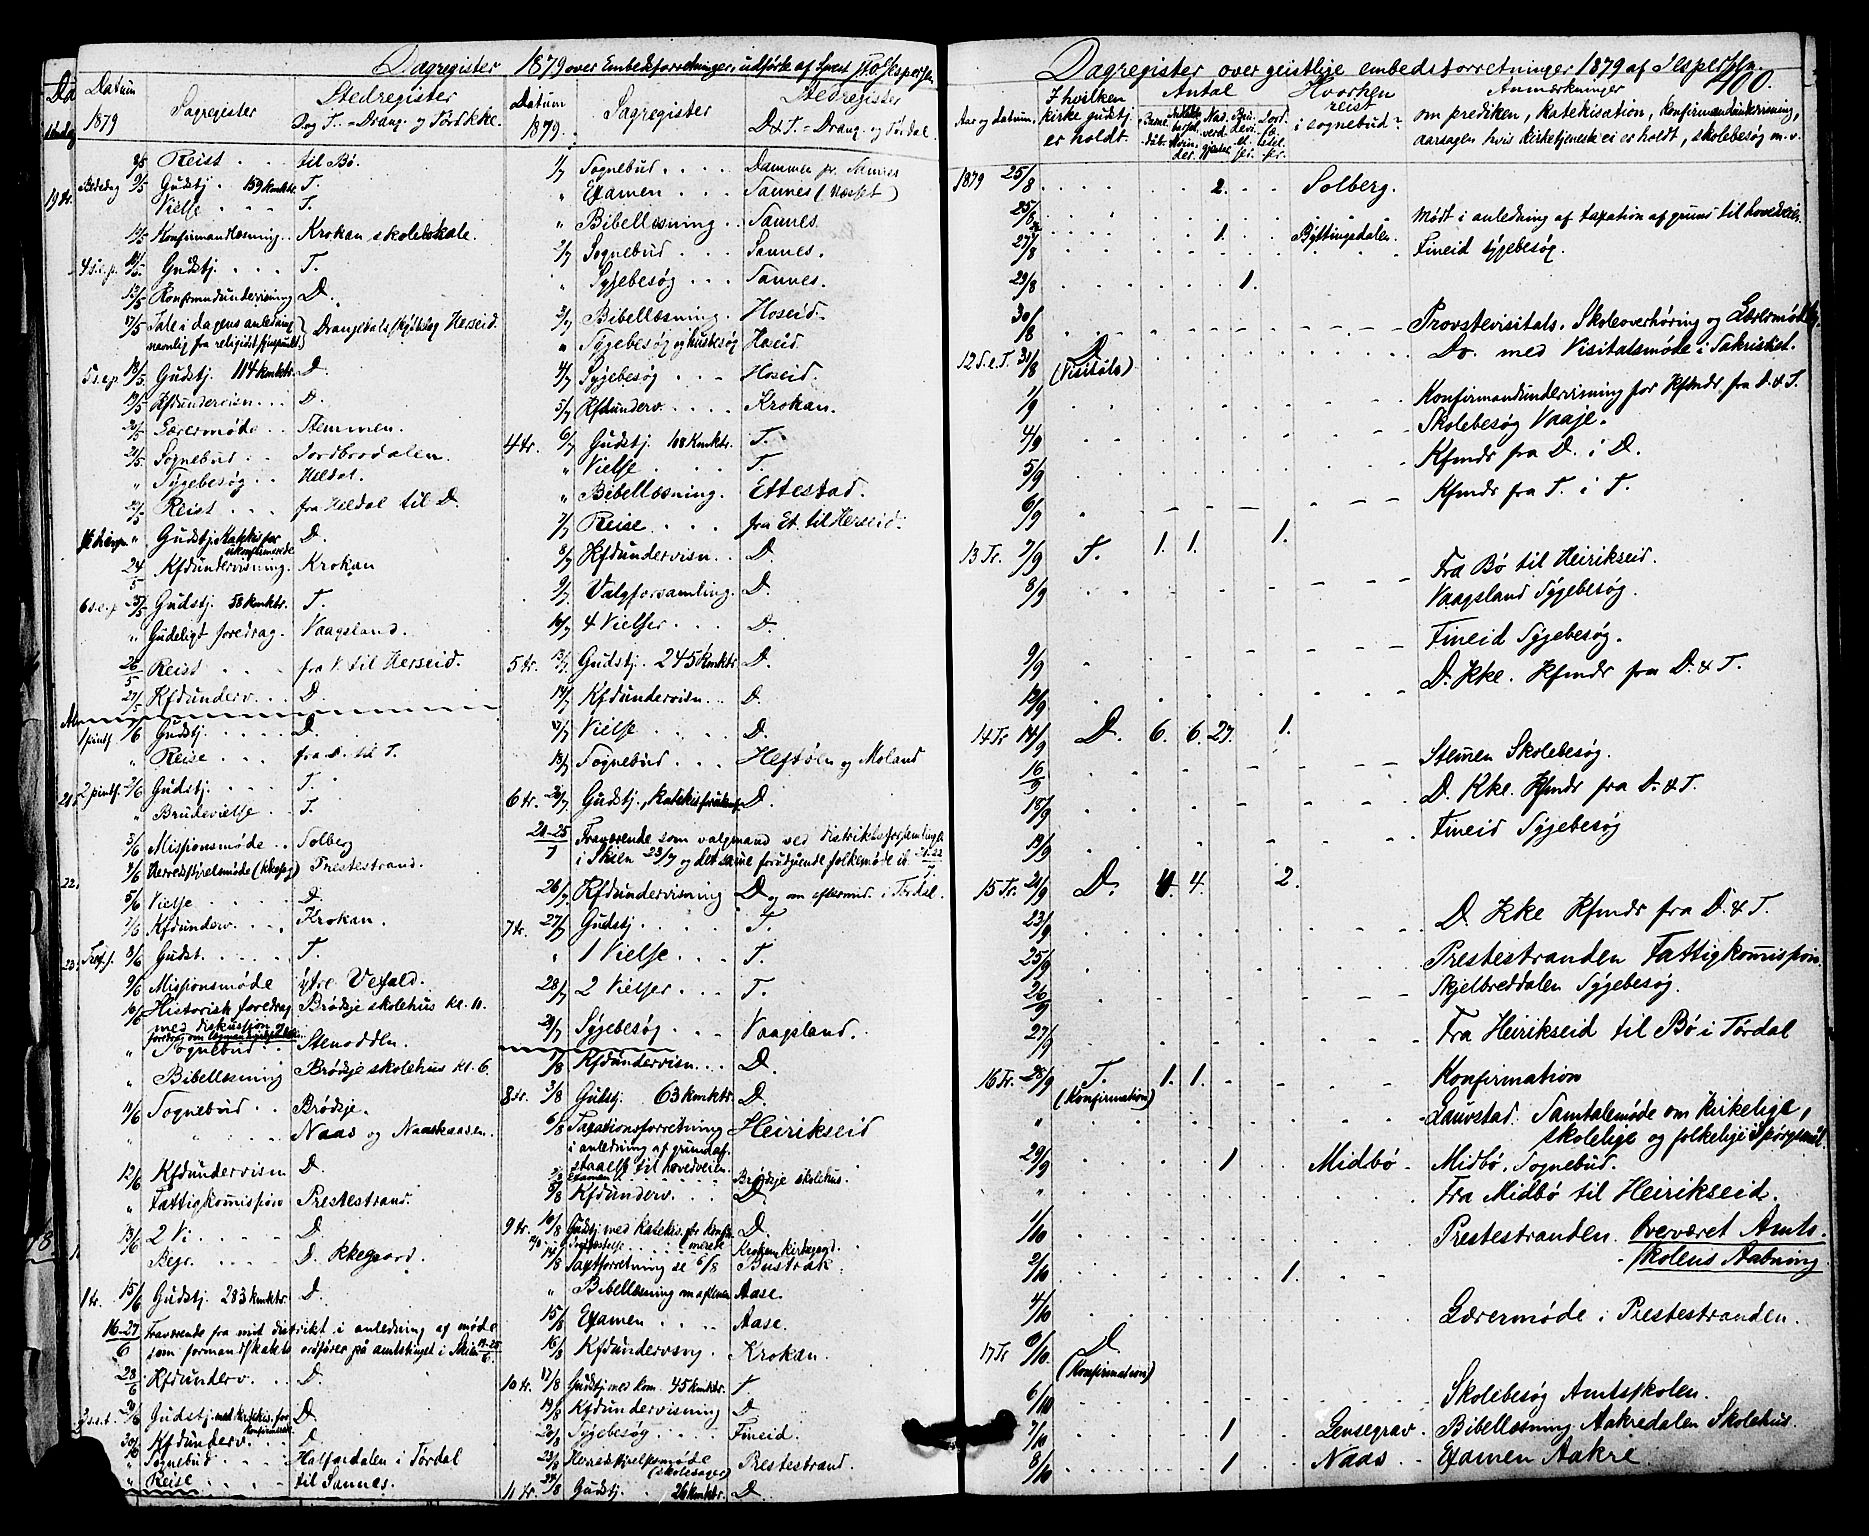 Dagregister 1879 over Embedsforretninger, udførte af
Datum
1879
Sagregister
Stedregister
D og T. = Drang. og Tørd. Kke.
8/5 Reist . . . til Bø.
Bededag 9/5 Gudstj. 159 kmktr. T.
Vielse . . . T.
Konfirmandlæsning . . Krokan skolelokale.
4 s.e.p. Gudstj. . . . T.
Konfirmdundervisning D.
17/5 Tale i dagens anledning
navnlig fra religiøst synspunkt.
Herseid.
5 s.e.p. 18/5 Gudstj. 114 kmktr. D.
19/5 Kfdundervisn . . . D.
20/5 Lærermøde . . Stemmen.
21/5 Sognebud . . Jordbrodalen.
" Sygebesøg . . Heldal.
22/5 Reist . . . fra Heldal til D.
" Gudstj. Katekis for ukonfirmerede D.
24/5 Kfdundervisning. Krokan
6 s.e.p. 25/5 Gudstj. 58 kmktr. T.
" Gudeligt foredrag. Vaagsland.
26/5 Reist . . fra V. til Herseid.
27/5 Kfdunderv. . . D.
1 pintsd. 1/6 Gudstj. . . . D.
" Reise . . . fra D. til T.
2 pintsd. 2/6 Gudstj. . . . T.
" Brudevielse . . T.
3/6 Missionsmøde . . Solberg
4/6 Herredsstyrelsmøde (kkesag) Prestestrand.
5/6 Vielse . . . . D.
7/6 Kfdunderv. . . . Krokan.
Tref. s. 8/6 Gudst. . . . T.
9/6 Missionsmøde ytre Vefald.
10/6 Historisk foredrag Brødsje skolehus kl. 11.
med diskussion og
" Sognebud . . Stenodden.
" Bibellæsning Brødsje skolehus kl. 6.
11/6 Sognebud . . Brødsje.
" " . . Naas og Naaskaasen.
12/6 Kfdundervisn D.
" Fattigkommission Prestestrand.
13/6 2 Vi. . . . D.
" Begr. . . . D. Kkegaard.
1 tr. 15/6 Gudstj. 283 kmktr. D.
16-27/6 Fraværende fra mit distrikt i anledning af møde
som formandskabets ordfører på amtstinget i Skien
28/6 Kfdunderv. . . D.
Gudstj. med katekis. for Konfirmerede D.
30/6 Kfdunderv. . . . D
Sognebud . . . Halfardalen i Tørdal
" Reise . . . . til Sannes.
Datum
1879.
Sagregister
Stedregister
D & T. = Drang. og Tørdal.
1/7 Sognebud . . . . Dammen pr. Sannes
" Examen . . . . Sannes (Næsset)
" Bibellæsning . . Sannes.
2/7 Sognebud . . . Sannes.
" Sygebesøg . . . Sannes.
3/7 Bibellæsning . Hoseid.
" Sygebesøg og husbesøg Hoseid.
4/7 Sygebesøg . . . Hoseid.
5/7 Kfdunderv. . . . . Krokan.
4 tr. 6/7 Gudstj. 108 kmktr. T.
" Vielse . . . . T.
" Bibellæsning. Ettestad.
7/7 Reise . . . . fra Et. til Herseid.
8/7 Kfdundervisn. . . D.
9/7 Valgforsamling. D.
10/7 4 Vielser . . . D.
5 tr. 13/7 Gudstj. 245 kmktr D.
14/7 Kfdundervisn . . . D.
17/7 Vielse . . . . D.
18/7 Sognebud . . . Heftøln og Moland
6 tr. 20/7 Gudstj., D.
21-25/7 Fraværende som valgmand ved distriktsforsamlingen
i Skien 23/7 og det samme forudgående folkemøde
26/7 Kfdundervisning D og om eftermid. i Tørdal.
7 tr. 27/7 Gudstj. . . . T.
" 1 Vielse . . . T.
28/7 2 Vielser . . . T.
29/7 Sygebesøg . . Vaagsland.
1/8 Kfdundervisn . . D.
8 tr. 3/8 Gutstj. 63 kmktr. D.
6/8 Taxationsforretning Heirikseid
i anledning af grundaf-
staaelse til hovedveien.
Examen . . . Brødsje skolehus.
Kfdunderv. . . . D.
9 tr. 10/8 Gudstj med katekis. for konfir- merede D.
Krokan kirkegard.
Taxtforretning se 6/8 Bustrak.
" Bibellæsning om aftenen Aase.
15/8 Examen . . . . Aase.
16/8 Kfdundervsng . . Krokan.
10 tr. 17/8 Gudstj med kom. 45 kmktr. T.
19/8 Kfdundervisning D.
20/8 Sygebesøg . . . Fineid.
23/8 Herredsstyrelsemøde (skolesager) Prestestrand.
11 tr. 24/8 Gudstj. . 26 kmktr. D.
Dagregister over geistlige embedsforretninger 1879 af Jespersen.
400.
Aar og datum.
I hvilken
kirke gudstj.
er holdt.
Antal
Hvorhen
reist
i sognebud?
Anmærkninger
om prediken, katekisation, konfirmandundervisning,
aarsagen hvis kirketjeneste ei er holdt, skolebesøg m. v.
1879 25/8 . . . . 2. . . Solberg.
25/8 Mødt i anledning af taxation af grund til hovedveien.
27/8 . . . . 1. . . Byttingsdalen. Fineid sygebesøg.
29/8 . . . . 1.
30/8 Provstevisitats. Skoleoverhøring og Lærermøde
12 S.e.T. 31/8 D. (Visitats) Do. med Visitatsmøde i Sakristiet.
1/9 Konfirmandundervisning for Kfmdr. fra D. & T.
4/9 Skolebesøg Vaaje.
5/9 Kfmdr fra D. i D.
6/9 Kfmdr fra T. i T.
13 Tr. 7/9 T. 1. 1. 1.
8/9 Fra Bø til Heirikseid.
Vaagsland Sygebesøg.
9/9 Fineid Sygebesøg.
D. Kke. Kfmdr fra D. & T.
14 Tr 14/9 D. 6. 6. 27. 1.
16/9 Stemen Skolebesøg.
18/9 D. Kke. Kfmdr fra D. & T.
19/9 Fineid Sygebesøg
15 Tr. 21/9 D. 4. 4. 2.
23/9 D. Kke Kfmdr fra D. & T.
25/9 Prestestranden Fattigkommission.
26/9 Skjelbreddalen Sygebesøg.
27/9 Fra Heirikseid til Bø i Tørdal
16 Tr. 28/9 T. (Konfirmation) 1. 1. Konfirmation
" Lauvstad. Samtalemøde om kirkelige,
skolelige og folkelige Spørgsmål.
29/9 1 Midbø. Midbø. Sognebud.
" Fra Midbø til Heirikseid.
1/10 Prestestranden. Overværet Amts-
skolens Aabning
2/10 1.
4/10 Lærermøde i Prestestranden.
17 Tr D. (Konfirmation)
6/10 Skolebesøg Amtsskolen.
7/10 1 Lensegrav. Bibellæsning Aakredalen Skolehus.
8/10 1 Naas . . Examen Aakre.